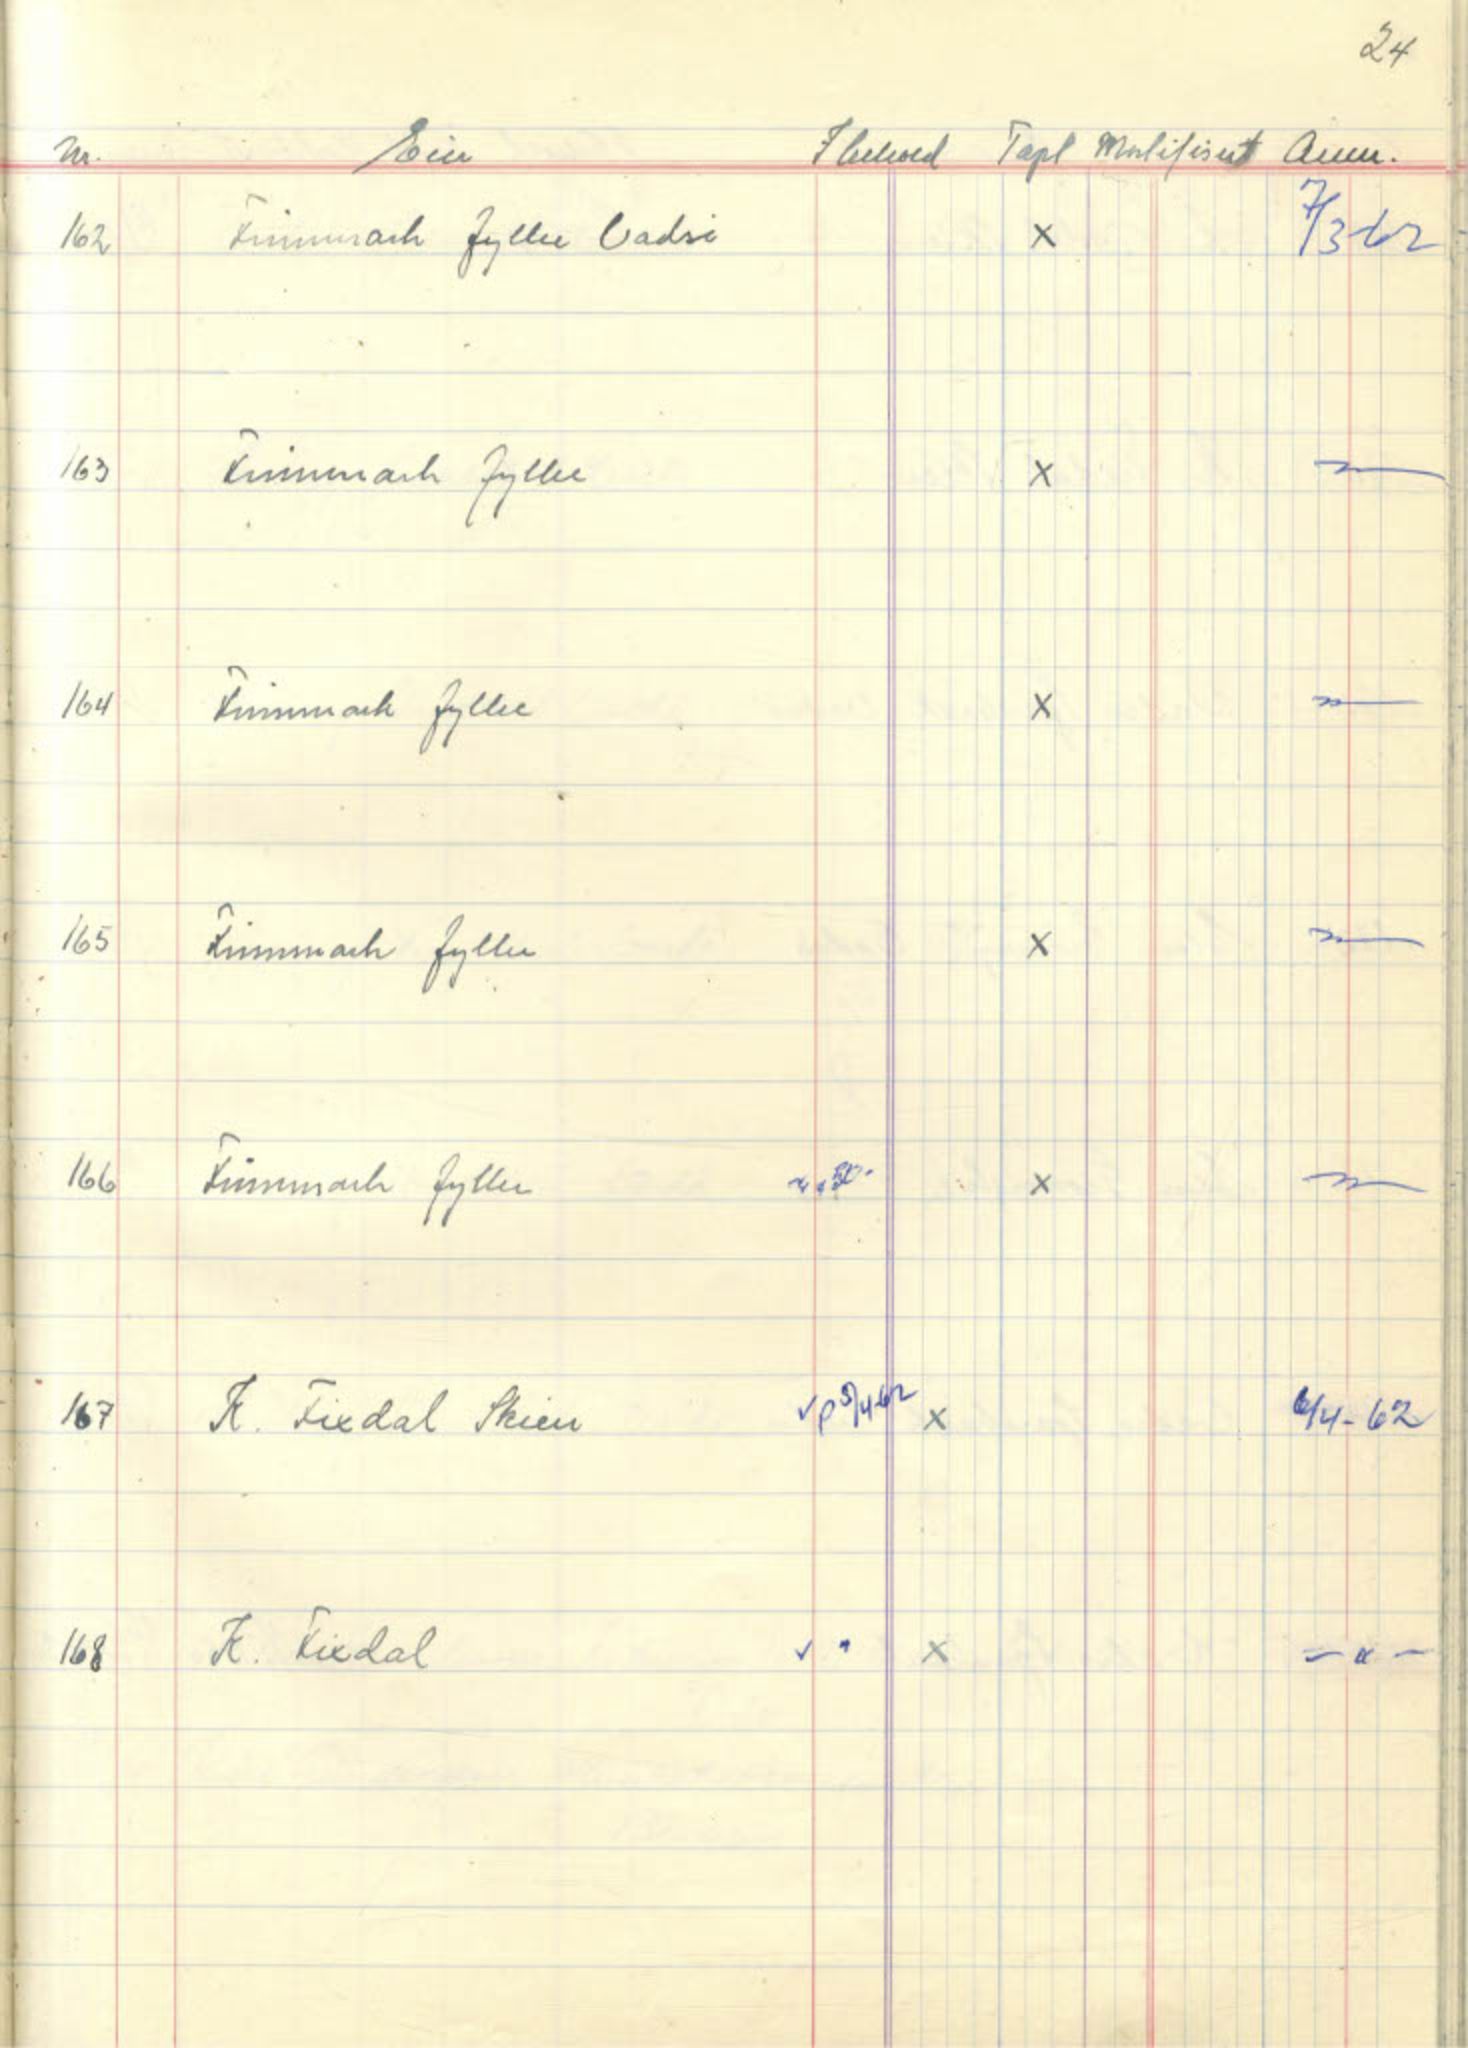 24
Nr. Eier I behold Tapt Modifisert Anm.
162 Finnmark fylke Vadsø x 7/3 62
163 Finnmark fylke x
164 Finnmark fylke x
165 Finnmark fylke x
166 Finnmark fylke x
167 K. Fixdal Skien ✓ 5/4-62 x 6/4-62
168 K. Fixdal ✓ " x - " -